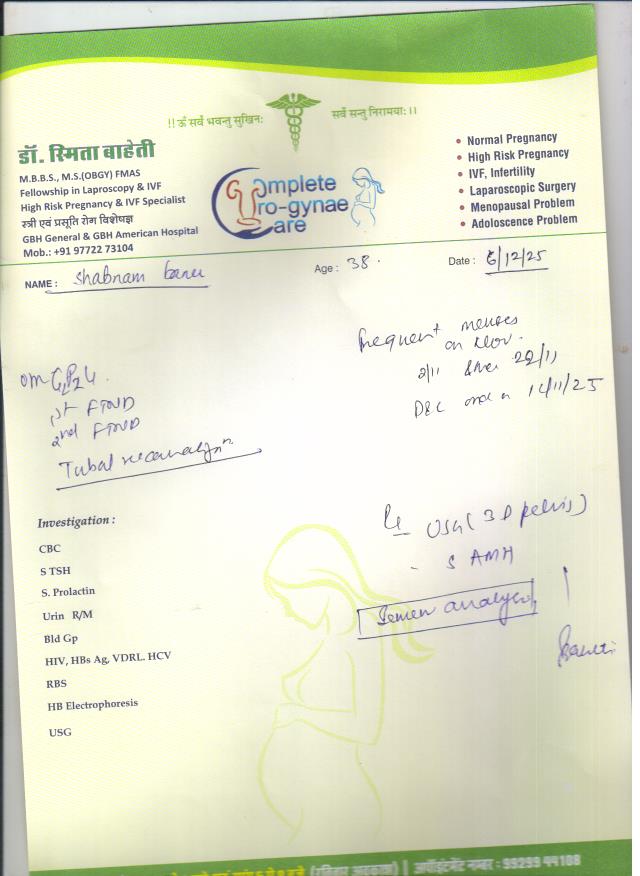 !! ॐ सर्वे भवन्तु सुखिनः
सर्वे सन्तु निरामयाः ।।
डॉ. स्मिता बाहेती
M.B.B.S., M.S.(OBGY) FMAS
Fellowship in Laproscopy & IVF
High Risk Pregnancy & IVF Specialist
स्त्री एवं प्रसूति रोग विशेषज्ञ
GBH General & GBH American Hospital
Mob.: +91 97722 73104
Complete
Uro-gynae
Care
• Normal Pregnancy
• High Risk Pregnancy
• IVF, Infertility
• Laparoscopic Surgery
• Menopausal Problem
• Adoloscence Problem
NAME : Shabnam banu
Age : 38.
Date : 6/12/25
frequent menses
on Nov.
2/11 22/11
D&C on 14/11/25
1st FTND
2nd FTND
Tubal
Investigation :
CBC
S TSH
S. Prolactin
Urin R/M
Bld Gp
HIV, HBs Ag, VDRL. HCV
RBS
HB Electrophoresis
USG
USG (3D pelvis)
- S AMH
Semen analysis
(रविवार अवकाश) | अपॉइंटमेंट नम्बर : 99299 44108